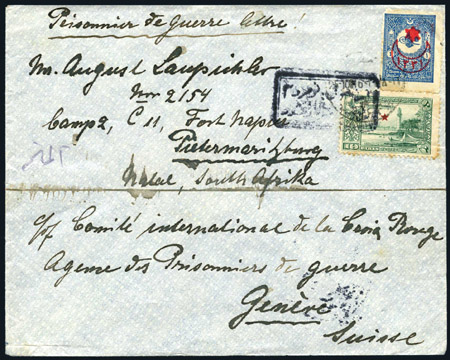 Prisonnier de guerre
Mr. August Laupichler
Nor 2154
Camp 2, C 11, Fort Napier
Pietermaritzburg
Natal, South Afrika
c/o Comité international de la Croix Rouge
Agence des Prisonniers de guerre
Genève
Suisse
١٣٣١